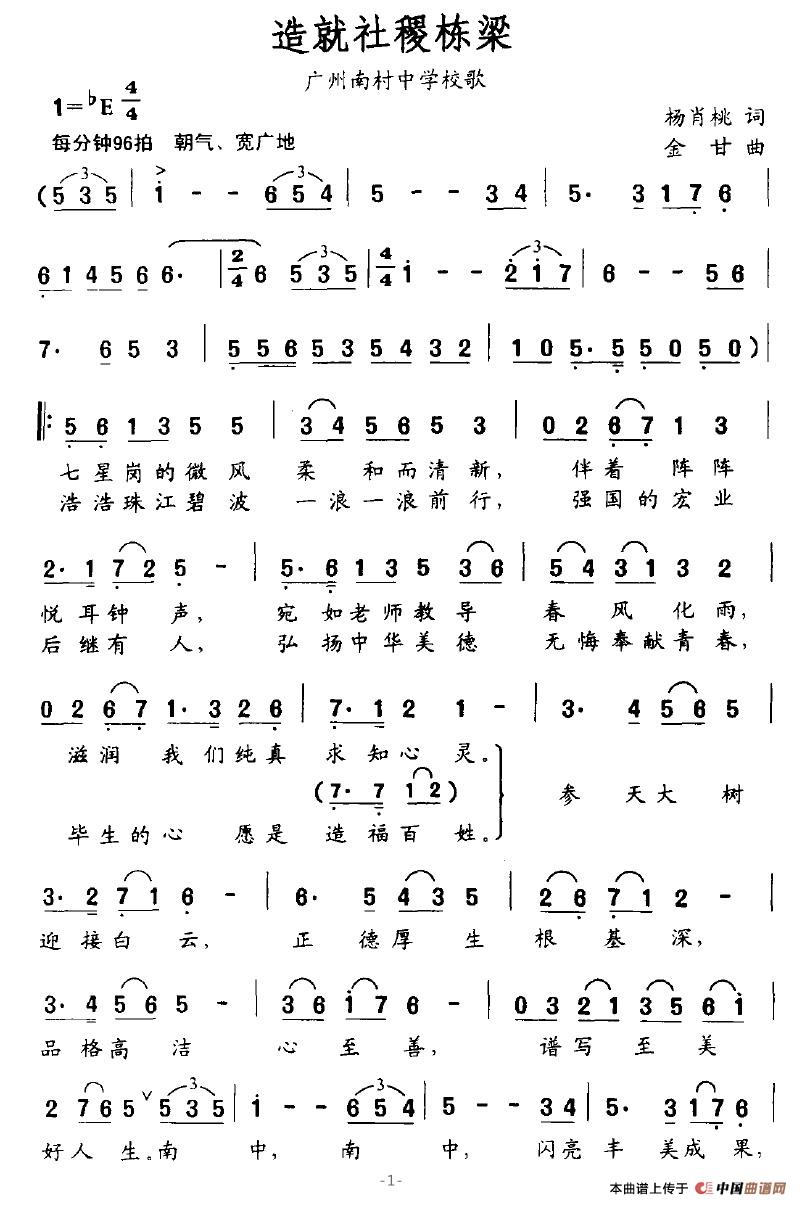 造就社稷栋梁
广州南村中学校歌
1=♭E 4/4
杨肖桃 词
每分钟96拍 朝气、宽广地
金 甘 曲
(5 3 5 | i - - 6 5 4 | 5 - - 3 4 | 5· 3 1 7 6 |
6 1 4 5 6 6 6· | 2/4 6 5 3 5 | 4/4 i - - 2 i 7 | 6 - - 5 6 |
7· 6 5 3 | 5 5 6 5 3 5 4 3 2 | 1 0 5· 5 5 0 5 0 ) |
‖: 5 6 1 3 5 5 | 3 4 5 6 5 3 | 0 2 6 7 1 3
七星岗的微风 柔 和而清新, 伴着 阵阵
浩浩珠江碧波 一浪一浪前行, 强国的宏业
2· 1 7 2 5 - | 5· 6 1 3 5 3 6 | 5 4 3 1 3 2 |
悦耳钟 声, 宛如老师教导 春 风 化雨,
后继有 人, 弘扬中华美德 无悔奉献青春,
0 2 6 7 1· 3 2 6 | 7· 1 2 1 - | 3· 4 5 6 5 |
滋润 我们纯真 求知心灵。
(7· 7 1 2)
参 天大 树
毕生的心 愿是 造福百姓。
3· 2 7 1 6 - | 6· 5 4 3 5 | 2 6 7 1 2 - |
迎接白 云, 正 德厚 生 根 基 深,
3· 4 5 6 5 - | 3 6 i 7 6 - | 0 3 2 1 3 5 6 i |
品格高 洁 心 至 善, 谱写 至 美
2 7 6 5 ∨ 5 3 5 | i - - 6 5 4 | 5 - - 3 4 | 5· 3 1 7 6 |
好人 生。南 中, 南 中, 闪亮 丰 美成 果,
-1-
本曲谱上传于 中国曲谱网